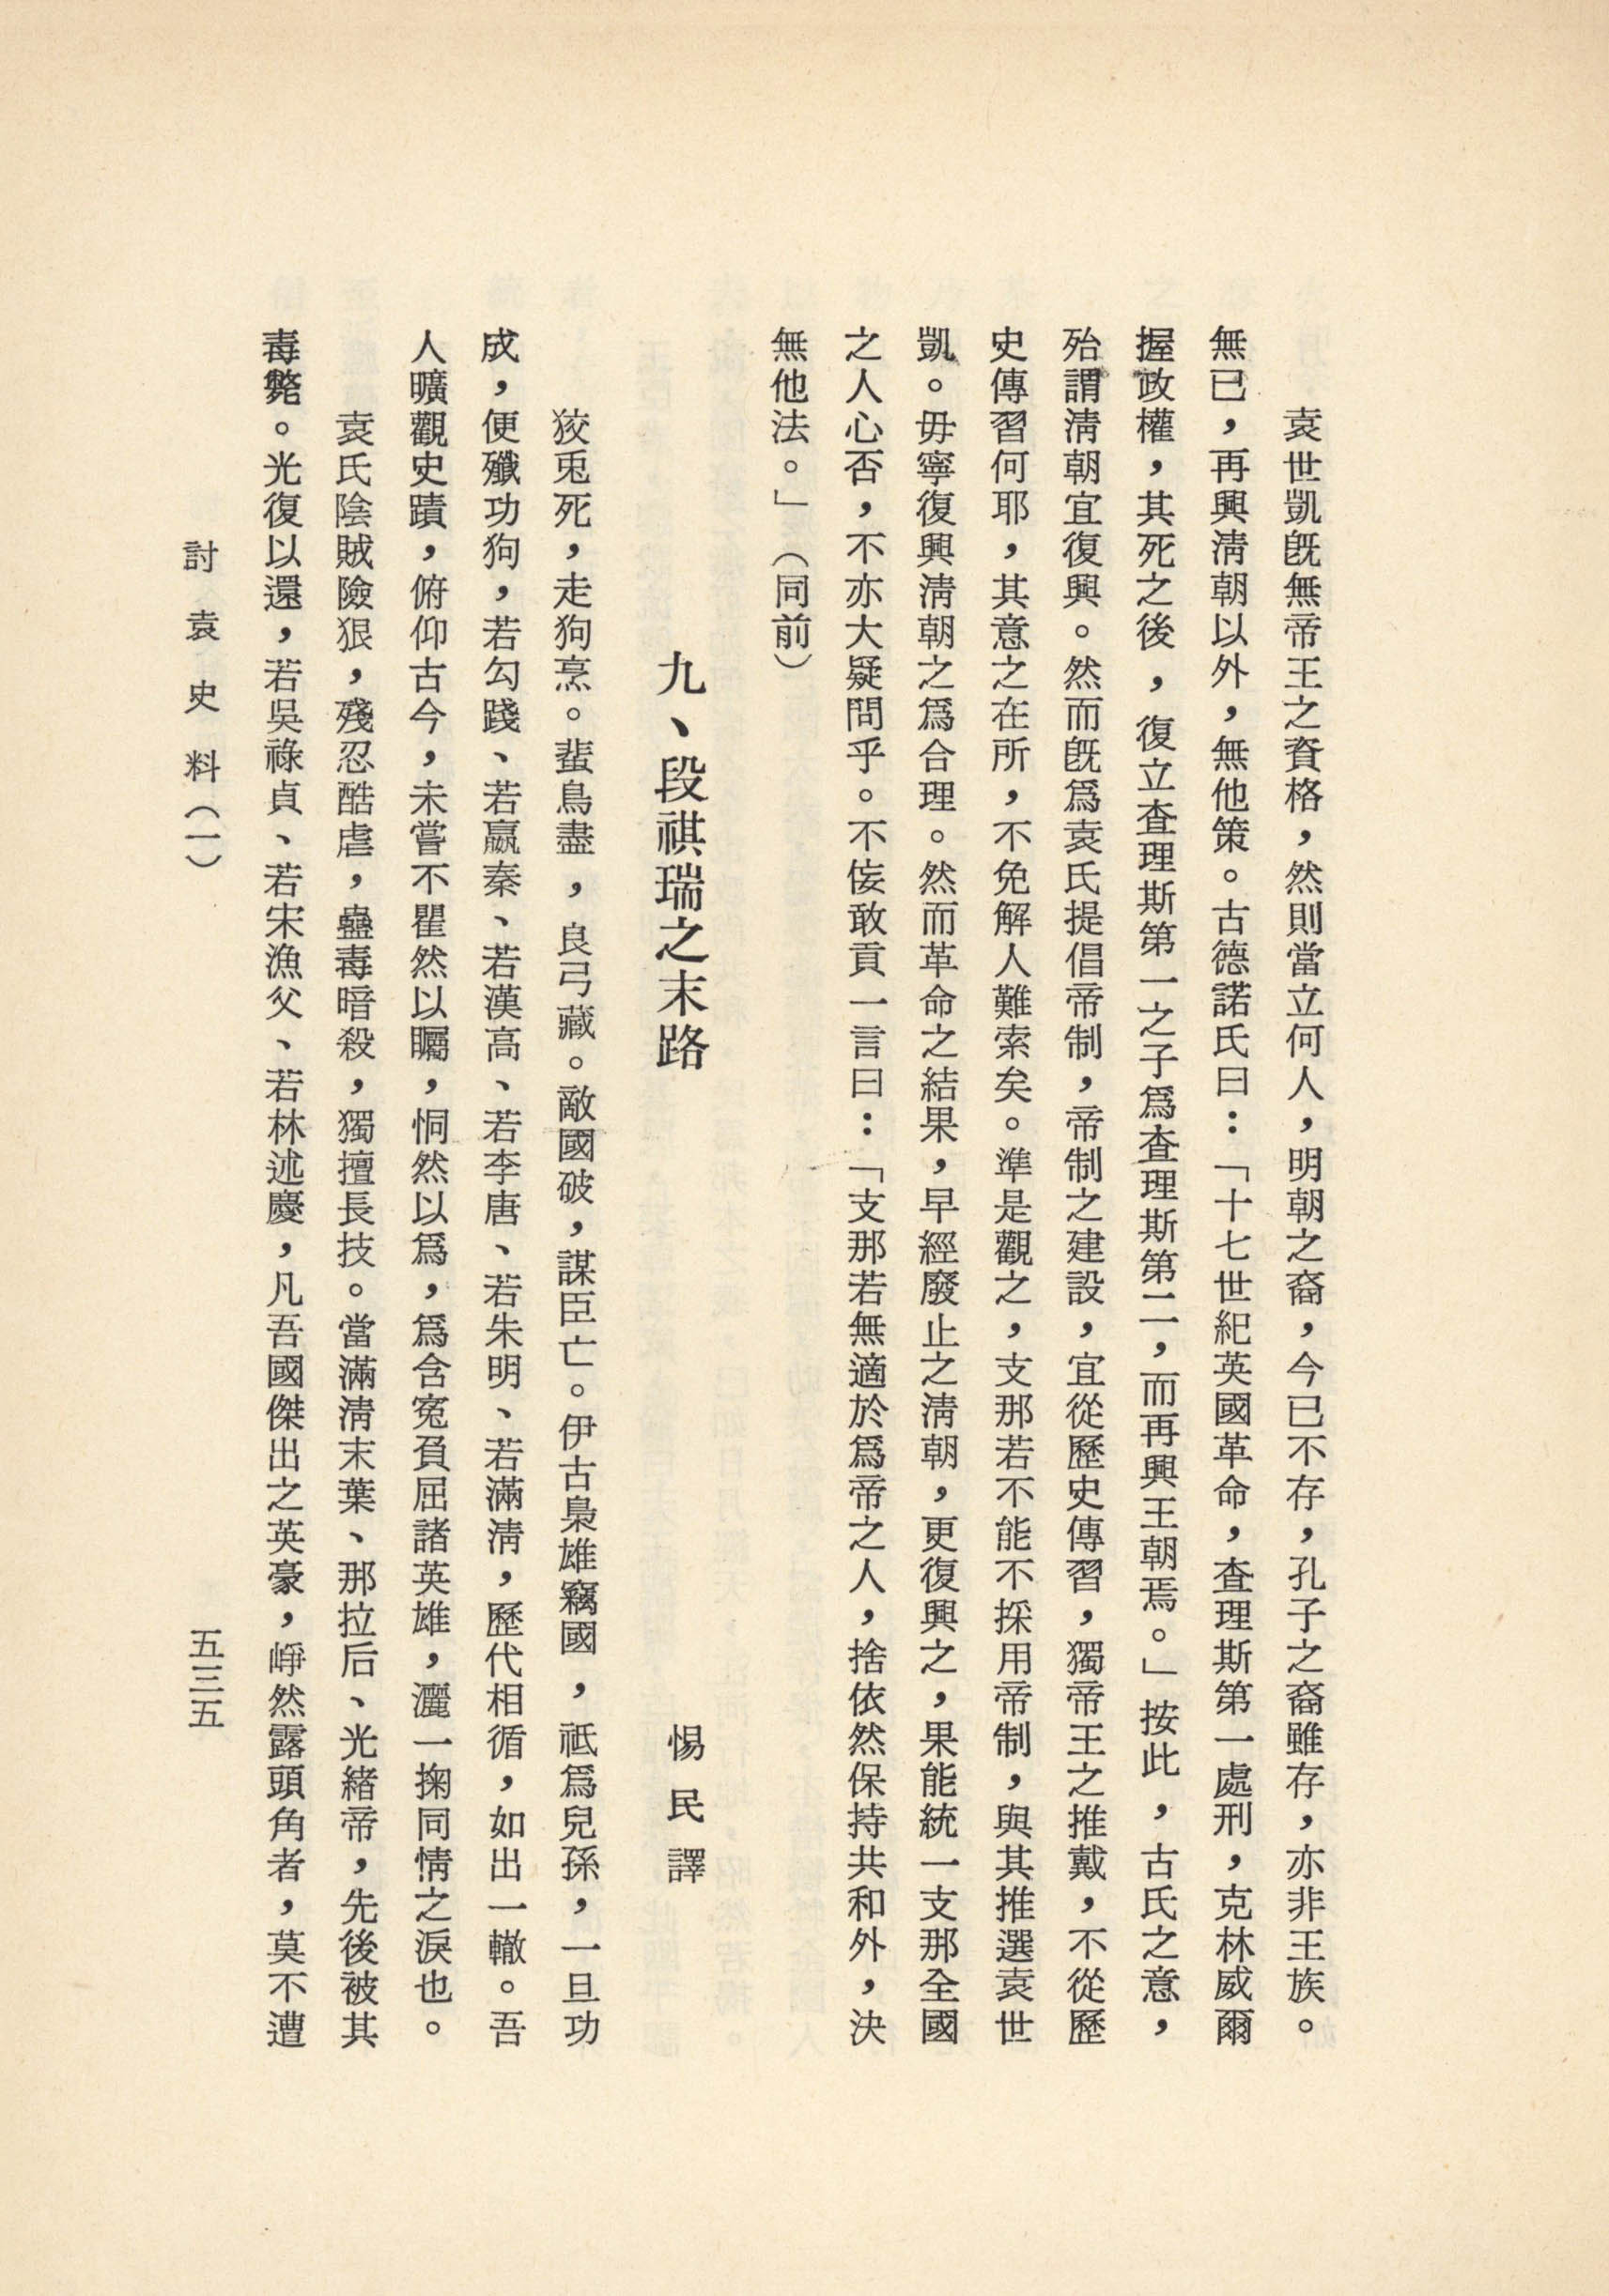 袁世凱旣無帝王之資格，然則當立何人，明朝之裔，今已不存，孔子之裔雖存，亦非王族。
無已，再興淸朝以外，無他策。古德諾氏曰：「十七世紀英國革命，查理斯第一處刑，克林威爾
握政權，其死之後，復立查理斯第一之子爲查理斯第二，而再興王朝焉。」按此，古氏之意，
殆謂淸朝宜復興。然而旣爲袁氏提倡帝制，帝制之建設，宜從歷史傳習，獨帝王之推戴，不從歷
史傳習何耶，其意之在所，不免解人難索矣。準是觀之，支那若不能不採用帝制，與其推選袁世
凱。毋寧復興淸朝之爲合理。然而革命之結果，早經廢止之淸朝，更復興之，果能統一支那全國
之人心否，不亦大疑問乎。不侫敢貢一言曰：「支那若無適於爲帝之人，捨依然保持共和外，決
無他法。」（同前）
九、段祺瑞之末路
惕民譯
狡兎死，走狗烹。蜚鳥盡，良弓藏。敵國破，謀臣亡。伊古梟雄竊國，祗爲兒孫，一旦功
成，便殲功狗，若勾踐、若嬴秦、若漢高、若李唐、若朱明、若滿淸，歷代相循，如出一轍。吾
人曠觀史蹟，俯仰古今，未嘗不瞿然以矚，恫然以爲，爲含寃負屈諸英雄，灑一掬同情之淚也。
袁氏陰賊險狠，殘忍酷虐，蠱毒暗殺，獨擅長技。當滿淸末葉、那拉后、光緒帝，先後被其
毒斃。光復以還，若吳祿貞、若宋漁父、若林述慶，凡吾國傑出之英豪，崢然露頭角者，莫不遭
討袁史料（一）
五三五